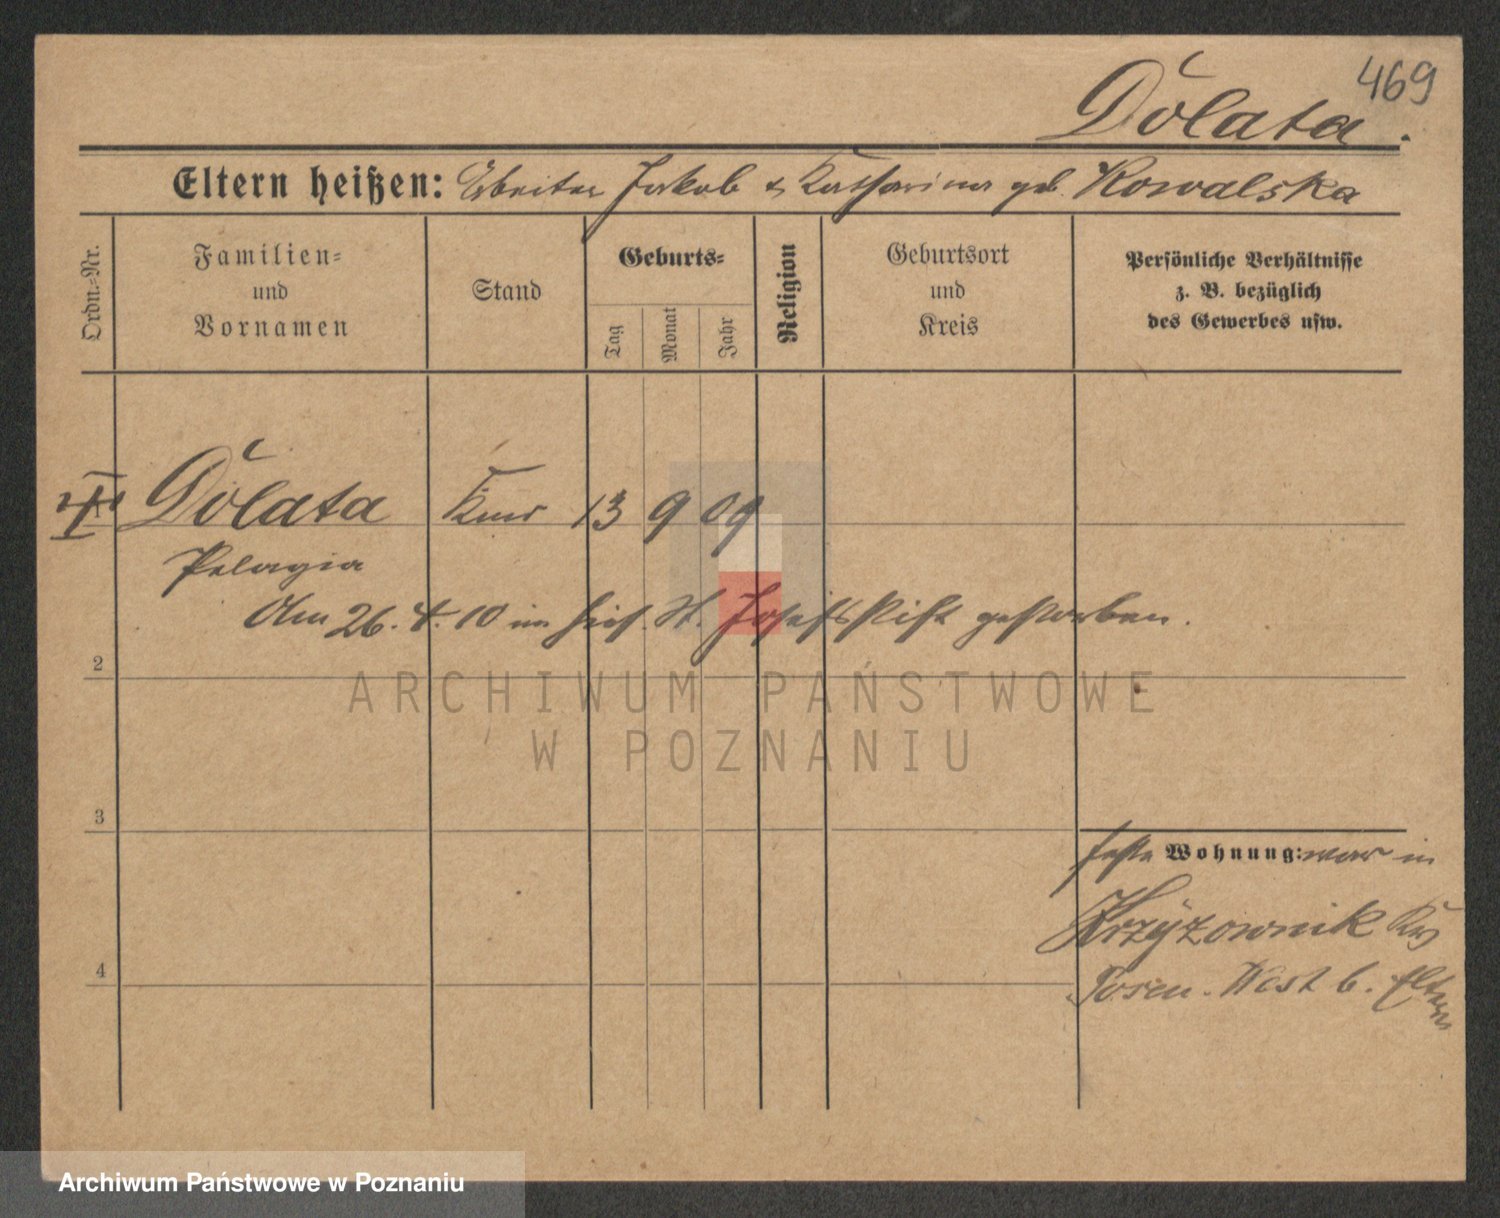 469
Dolata.
Eltern heißen: Arbeiter Jakob & Katharina geb. Kowalska
Ordn.-Nr.
Familien=
und
Vornamen
Stand
Geburts=
Tag
Monat
Jahr
Religion
Geburtsort
und
Kreis
Persönliche Verhältnisse
z. B. bezüglich
des Gewerbes usw.
Dolata
13 9 09
Pelagia
Am 26. 4. 10 im hies. St. Josefsstift gestorben.
2
ARCHIWUM PAŃSTWOWE
W POZNANIU
3
feste Wohnung: war in
Krzyzownik Krs
4
Posen. West b. Eltern
Archiwum Państwowe w Poznaniu